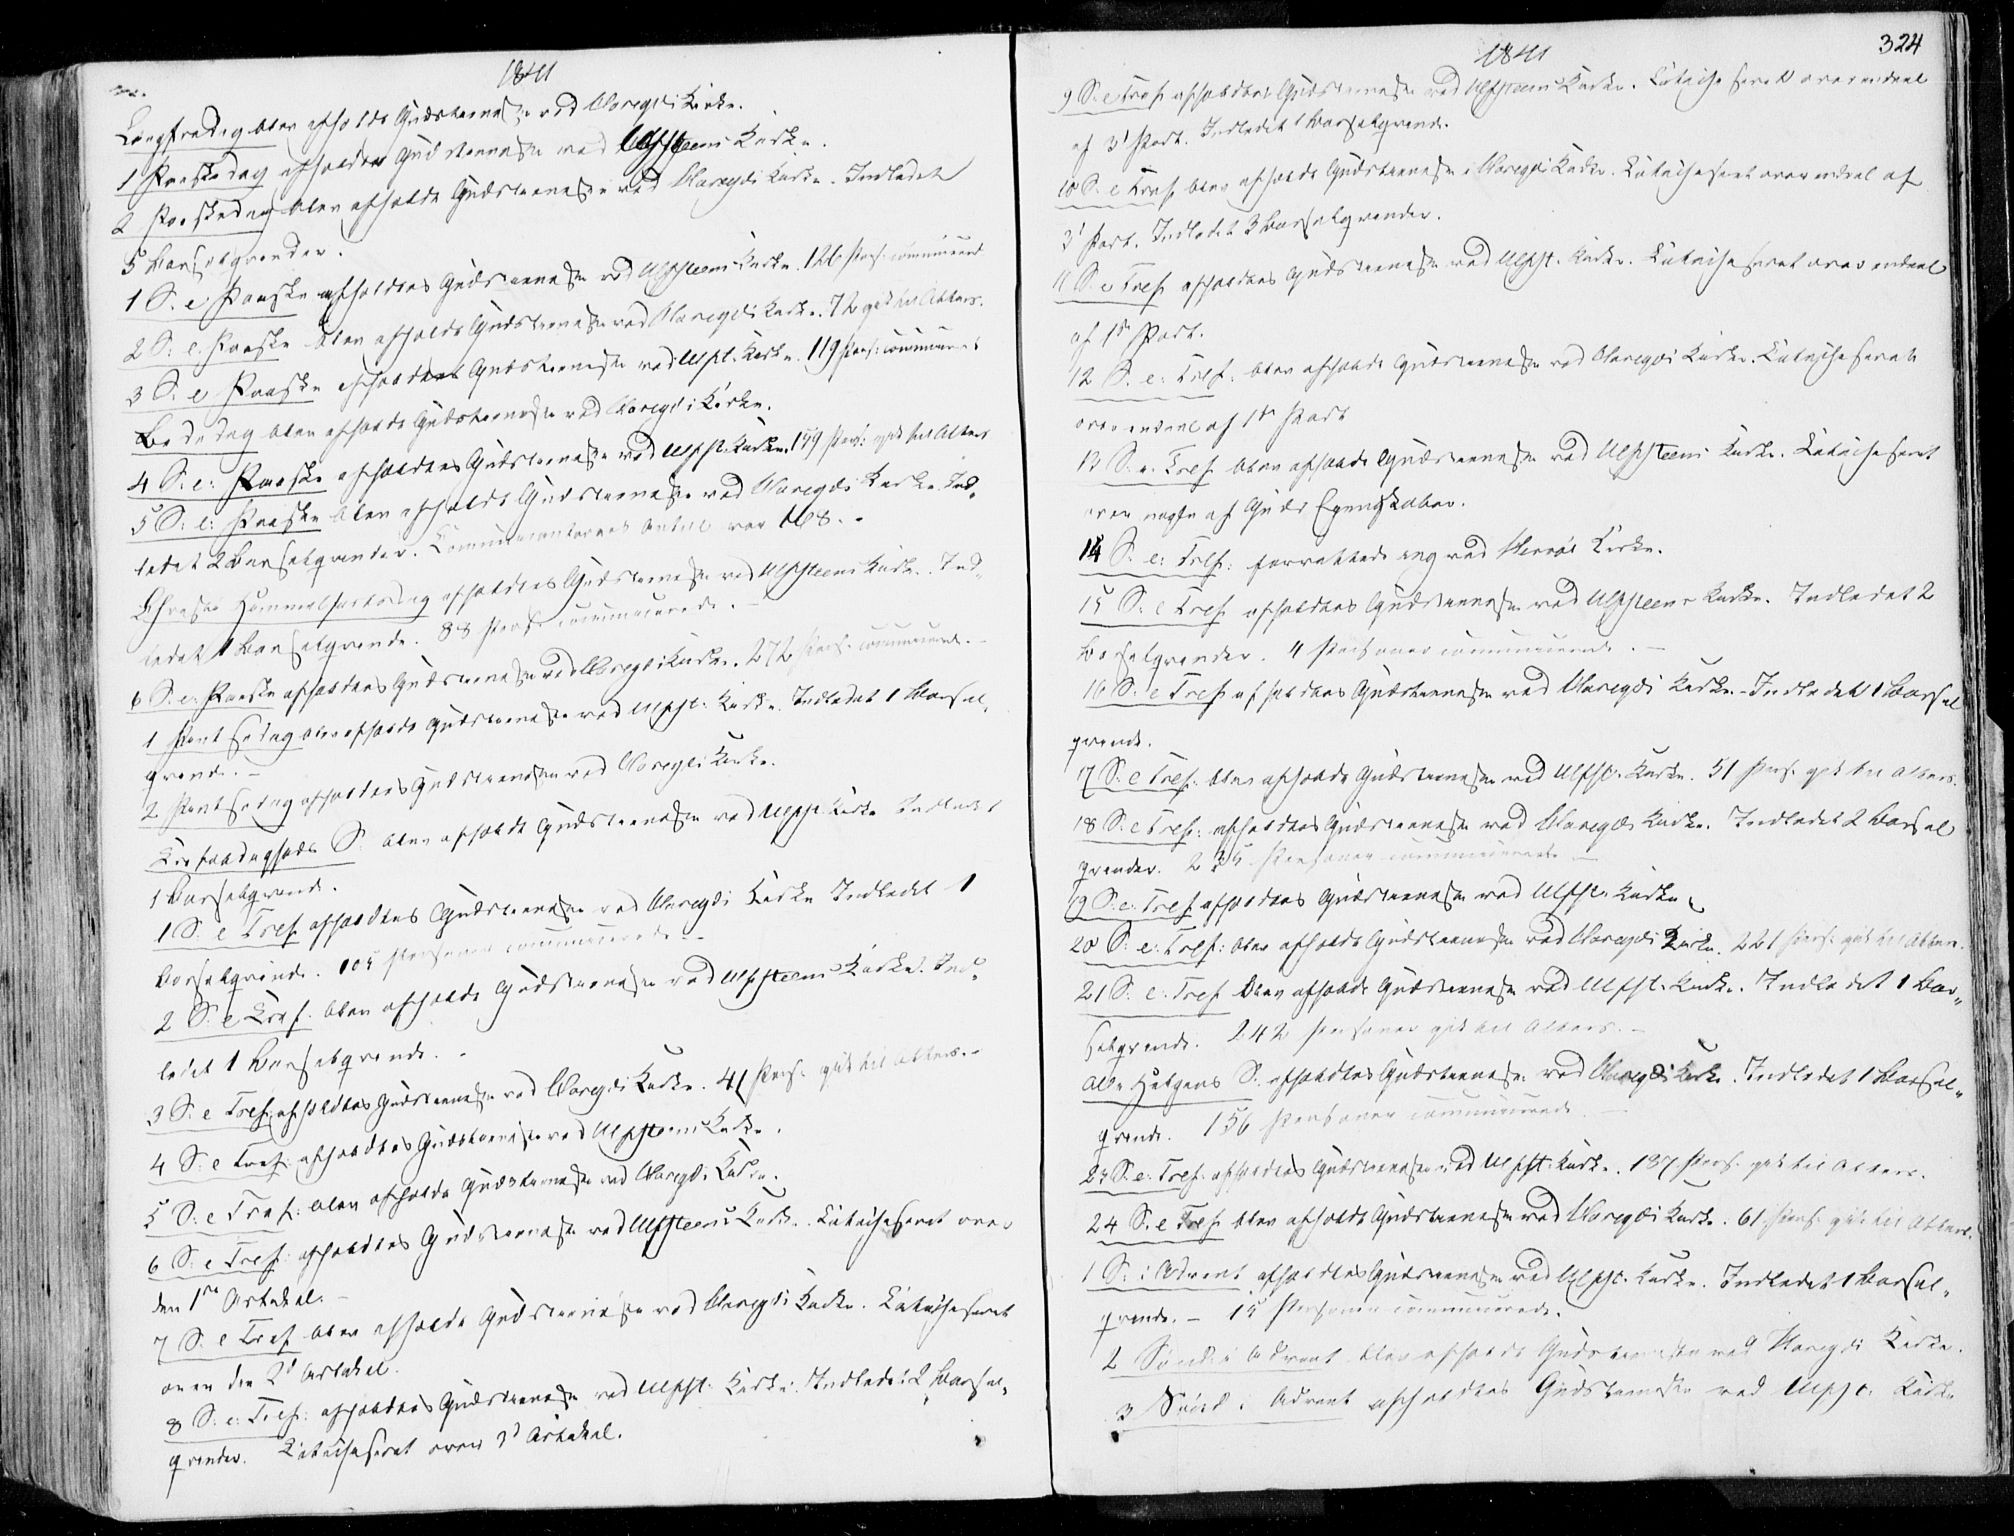 1841
Langfredag blev afholdt Gudstieneste ved Haregds Kirke.
1 Paaskedag afholdtes Gudstieneste ved Ulfsteens Kirke.
2 Paaskedag blev afholdt Gudstieneste ved Haregds Kirke. Indledet
5 Barselqvinder.
1 S. e. Paaske afholdtes Gudstieneste ved Ulfsteens Kirke. 126 Pers: communicerede
2 S: e. Paaske blev afholdt Gudstieneste ved Haregds Kirke. 72 gik til Alters.
3 S. e. Paaske afholdtes Gudstieneste ved Ulfst. Kirke. 119 Pers: communicerede
Bededag blev afholdt Gudstieneste ved Haregds Kirke.
4 S: e: Paaske afholdtes Gudstieneste ved Ulfst. Kirke. 159 Pers: gik til Alters
5 S: e: Paaske blev afholdt Gudstieneste ved Haregds Kirke. Ind„
ledet 2 Barselqvinder. Communicanternes Antal var 168. -
Christi Himmelfartsdag afholdtes Gudstieneste ved Ulfsteens Kirke. Ind„
ledet 1 Barselqvinde. 88 Pers: communicerede. -
6 S. e. Paaske afholdtes Gudstieneste ved Haregds Kirke. 272 Pers: communicerede. -
1 Pintsedag blev afholdt Gudstieneste ved Ulfst. Kirke. Indledet 1 Barsel„
qvinde. -
2 Pintsedag afholdtes Gudstieneste ved Haregds Kirke.
Trefoldigheds S. blev afholdt Gudstieneste ved Ulfst. Kirke Indledet
1 Barselqvinde.
1 S: e Tref. afholdtes Gudstieneste ved Haregds Kirke Indledet 1
Barselqvinde. 105 Personer communicerede. -
2 S: e Tref. blev afholdt Gudstieneste ved Ulfsteens Kirke. Ind„
ledet 1 Barselqvinde. -
3 S: e Tref: afholdtes Gudstieneste ved Haregds Kirke. 41 Pers: gik til Alters. -
4 S: e Tref: afholdtes Gudstieneste ved Ulfsteens Kirke.
5 S: e Tref: blev afholdt Gudstieneste ved Haregds Kirke.
6 S: e Tref: afholdtes Gudstieneste ved Ulfsteens Kirke. Catechiseret over
den 1ste Artikel. -
7 S. e Tref blev afholdt Gudstieneste ved Haregds Kirke. Catechiseret
over den 2d Artikel.
8 S: e: Tref: afholdtes Gudstieneste ved Ulfst. Kirke. Indledet 2 Barsel„
qvinder. Catechiseret over 3d Artikel.
1841
324
9 S: e Tref afholdtes Gudstieneste ved Ulfsteens Kirke. Catechiseret over endeel
af 3d Part. Indledet 1 Barselqvinde.
10 S. e Tref blev afholdt Gudstieneste i Haregds Kirke. Catechiseret over endeel af
3d Part. Indledet 3 Barselqvinder.
11 S: e Tref afholdtes Gudstieneste ved Ulfst. Kirke. Catechiseret over endeel
af 1ste Part.
12 S. e: Tref: blev afholdt Gudstieneste ved Haregds Kirke. Catechiseret
over endeel af 1ste Part
13 S. e. Tref. blev afholdt Gudstieneste ved Ulfsteens Kirke. Catechiseret
over nogle af Guds Egenskaber.
14 S: e: Tref: forrettede jeg ved Herrøe Kirke.
15 S: e Tref afholdtes Gudstieneste ved Ulfsteens Kirke. Indledet 2
Barselqvinder. 4 Personer communicerede. -
16 S: e Tref afholdtes Gudstieneste ved Haregds Kirke. - Indledet 1 Barsel
qvinde.
17 S: e Tref. blev afholdt Gudstieneste ved Ulfst. Kirke. 51 Pers: gik til Alters.
18 S: e Tref: afholdtes Gudstieneste ved Haregds Kirke. Indledet 2 Barsel
qvinder. 235 Personer communicerede. -
19 S: e: Tref afholdtes Gudstieneste ved Ulfst. Kirke.
20 S: e: Tref: blev afholdt Gudstieneste ved Haregds Kirke. 221 Pers: gik til Alters.
21 S: e: Tref blev afholdt Gudstieneste ved Ulfst. Kirke. Indledet 1 Bar„
selqvinde. 242 Personer gik til Alters. -
Alle Helgens S. afholdtes Gudstieneste ved Haregds Kirke. Indledet 1 Barsel„
qvinde. 156 Personer communicerede. -
23 S. e: Tref: afholdtes Gudstieneste ved Ulfst. Kirke. 187 Pers: gik til Alters.
24 S: e Tref blev afholdt Gudstieneste ved Haregds Kirke. 61 Pers: gik til Alters.
1 S: i Advent afholdtes Gudstieneste ved Ulfst. Kirke. Indledet 1 Barsel„
qvinde. - 15 Personer communicerede.
2 Sønd: i Advent blev afholdt Gudstieneste ved Haregds Kirke.
3 Sønd. i Advent afholdtes Gudstieneste ved Ulfst. Kirke